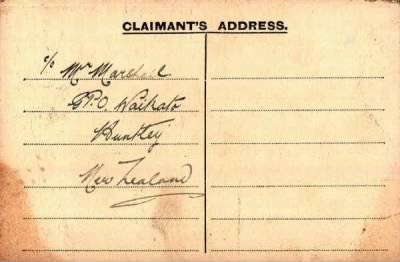 CLAIMANT'S ADDRESS.
c/o Mrs Marshall
G.P.O. Waikato
Huntley
New Zealand